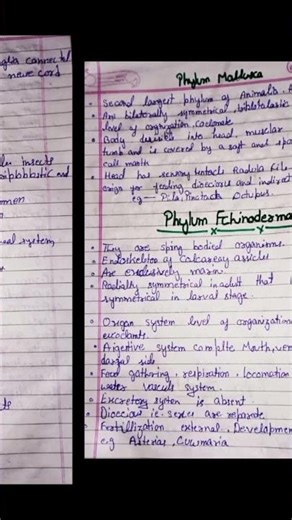 nglia connected
nerve cord
insects
men
system
Phylum Mollusca
Second largest phylum of Animals.
Are bilaterally symmetrical, triploblastic
level of organization, Coelomate
Body divided into head, muscular
and is covered by a soft and spo
call mantle
Head has sensory tentacls Radula file
organ for feeding, dioecious and indirect
e.g — Pila, Pinctada Octopus.
Phylum Echinoderma
They are spiny bodied organisms.
Endoskeleton of Calcareous ossicles
Are exclusively marin.
Radially symmetrical in adult that
symmetrical in larval stage.
Organ system level of organization
eucoelomats.
Digestive system complte Mouth, ven
dorsal side
Food gathering, respiration, locomotion
water vasculs system.
Excretory systen is absent.
Dioecious ie. sexes are reparate.
Fertillization external, Development
e.g Asterias, Cucumaria